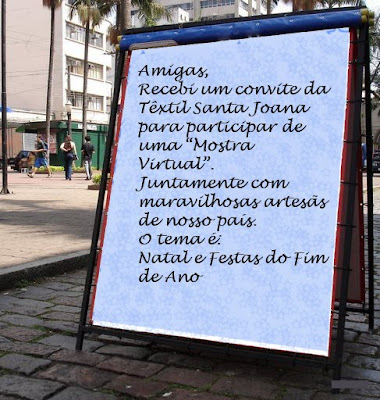 Amigas,
Recebi um convite da
Têxtil Santa Joana
para participar de
uma “Mostra
Virtual”.
Juntamente com
maravilhosas artesãs
de nosso país.
O tema é:
Natal e Festas do Fim
de Ano